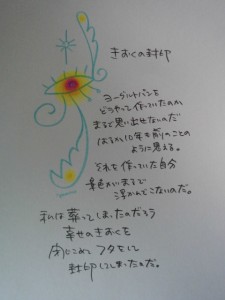 きおくの封印
ヨーグルトパンを
どうやって作っていたのか
まるで思い出せないのだ
はるか10年も前のことの
ように思える。
それを作っていた自分
景色がいまるで
浮かんでこないのだ。
私は葬ってしまったのだろう
幸せのきおくを
閉じこめ フタをして
封印してしまったのだ。